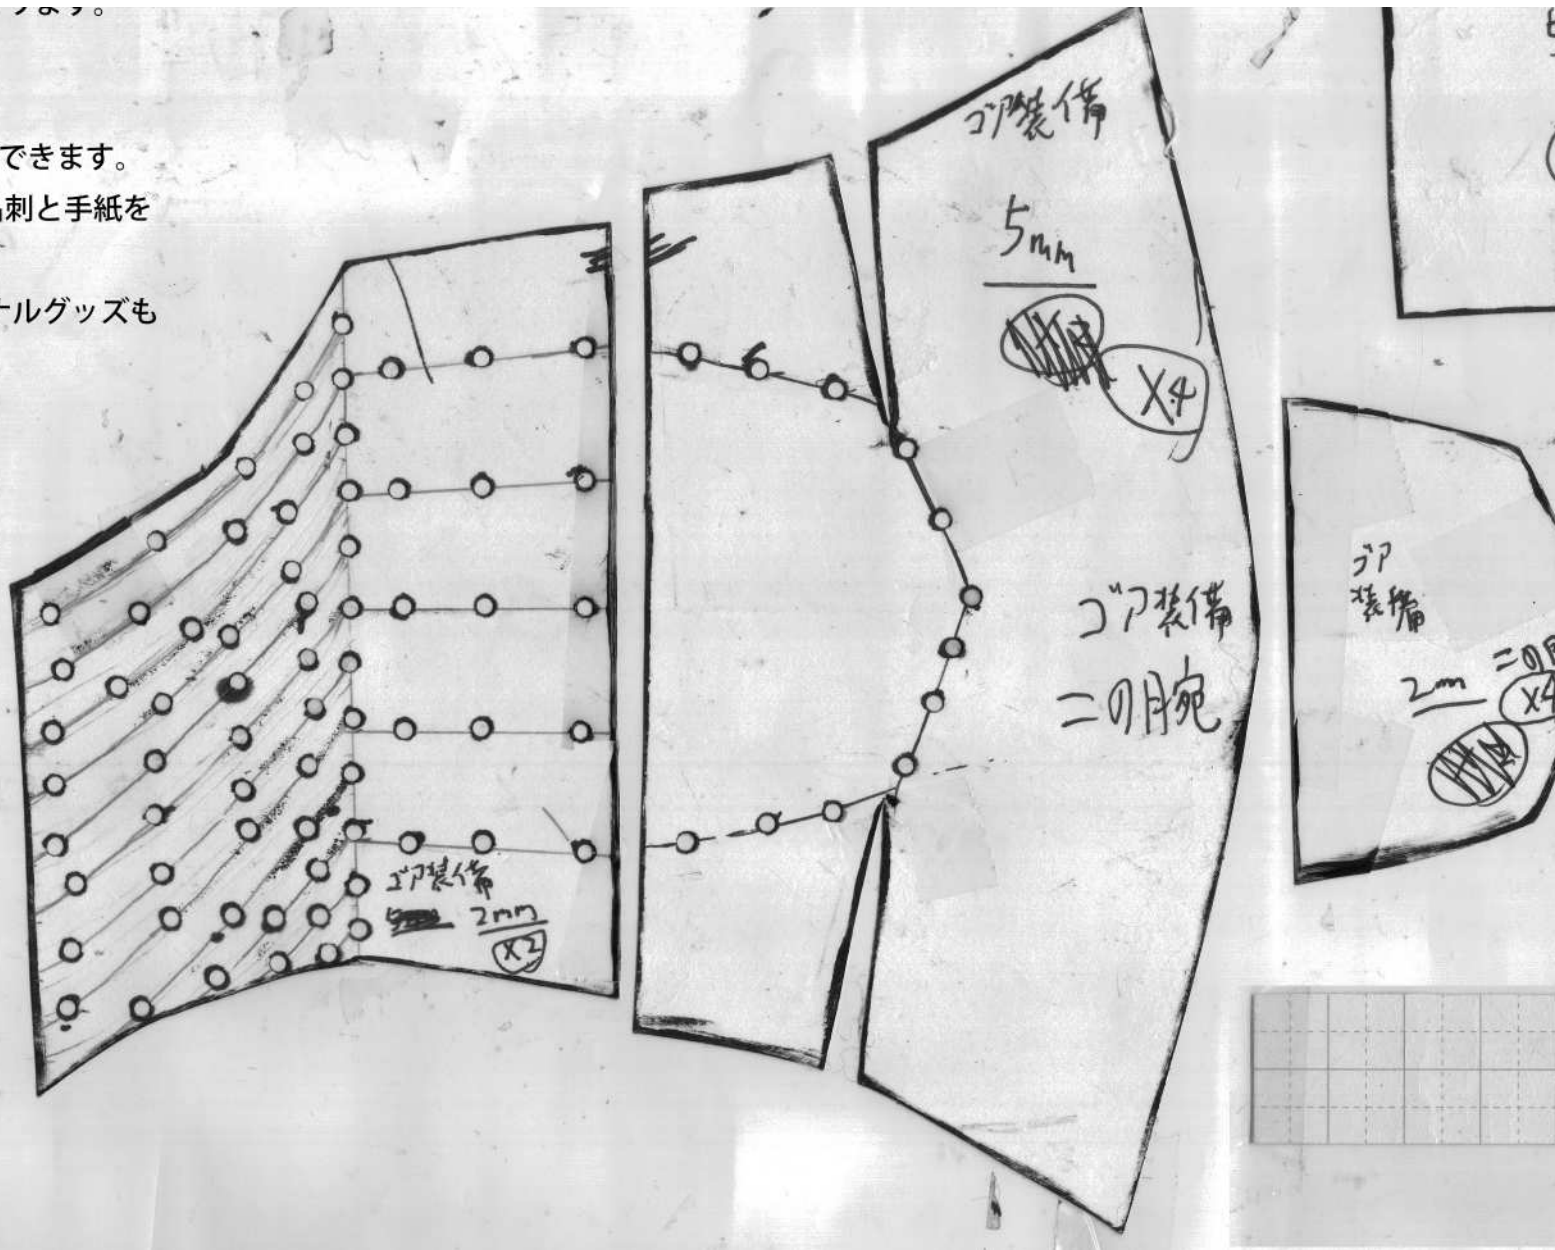 ります。
できます。
刺と手紙を
ナルグッズも
ゴア装備
5mm
X4
ゴア装備
二の腕
ゴア装備
2mm
X2
ゴア
装備
2mm
二の
X4